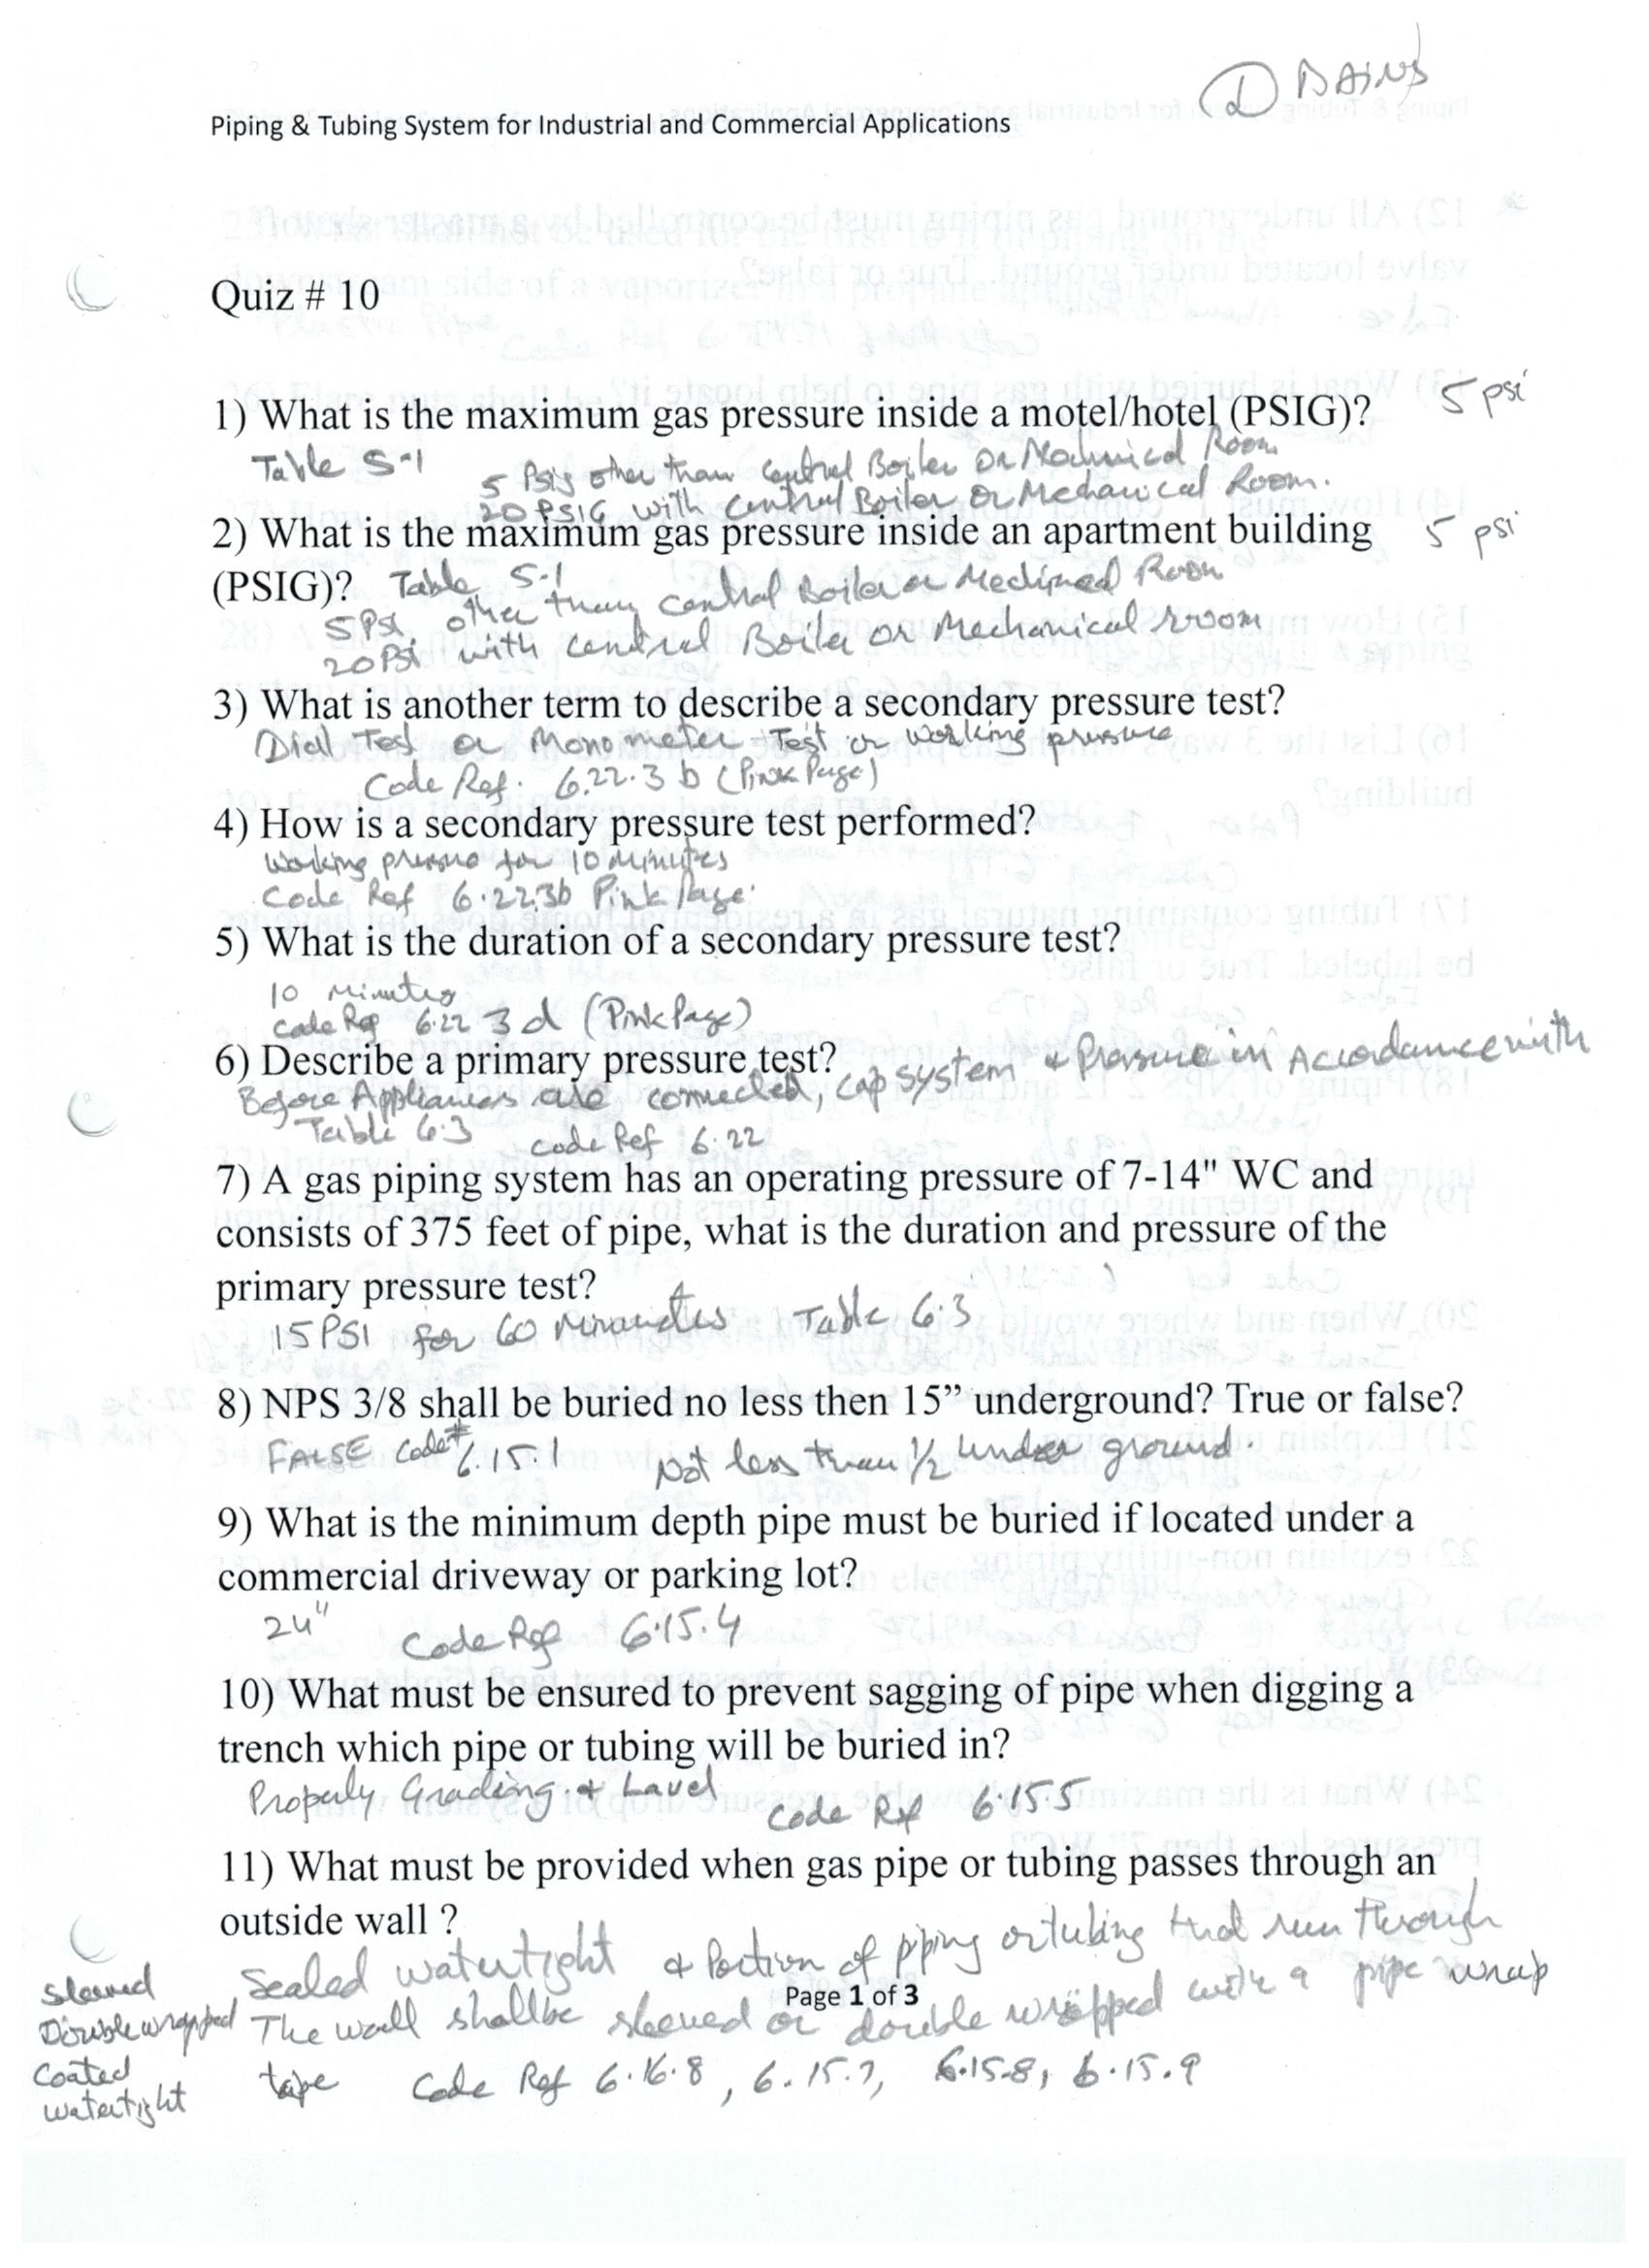 D BAINS
Piping & Tubing System for Industrial and Commercial Applications
Quiz # 10
1) What is the maximum gas pressure inside a motel/hotel (PSIG)? 5 psi
Table 5-1 5 Psig other than central Boiler or Mechanical Room
20 PSIG with central Boiler or Mechanical Room.
2) What is the maximum gas pressure inside an apartment building 5 psi
(PSIG)? Table 5-1
5 PSI other than central Boiler or Mechanical Room
20 PSI with central Boiler or Mechanical rroom
3) What is another term to describe a secondary pressure test?
Dial Test or Monometer Test or working pressure
Code Ref. 6.22.3 b (Pink Page)
4) How is a secondary pressure test performed?
Working pressure for 10 Minutes
Code Ref 6.22.3b Pink Page
5) What is the duration of a secondary pressure test?
10 Minutes
Code Ref 6.22 3 d (Pink Page)
6) Describe a primary pressure test?
Before Appliances are connected, cap system & Pressure in Accordance with
Table 6.3 code Ref 6.22
7) A gas piping system has an operating pressure of 7-14" WC and
consists of 375 feet of pipe, what is the duration and pressure of the
primary pressure test?
15 PSI for 60 Minutes Table 6.3
8) NPS 3/8 shall be buried no less then 15” underground? True or false?
FALSE Code# 6.15.1 Not less than 1/2 under ground.
9) What is the minimum depth pipe must be buried if located under a
commercial driveway or parking lot?
24" Code Ref 6.15.4
10) What must be ensured to prevent sagging of pipe when digging a
trench which pipe or tubing will be buried in?
Properly Grading & Lavel Code Ref 6.15.5
11) What must be provided when gas pipe or tubing passes through an
outside wall ?
Sealed watertight & Portion of pping or tubing that run through
The wall shall be sleeved or double wrapped with a pipe wrap
tape Code Ref 6.16.8, 6.15.7, 6.15.8, 6.15.9
sleeved
Double wrapped
Coated
watertight
Page 1 of 3